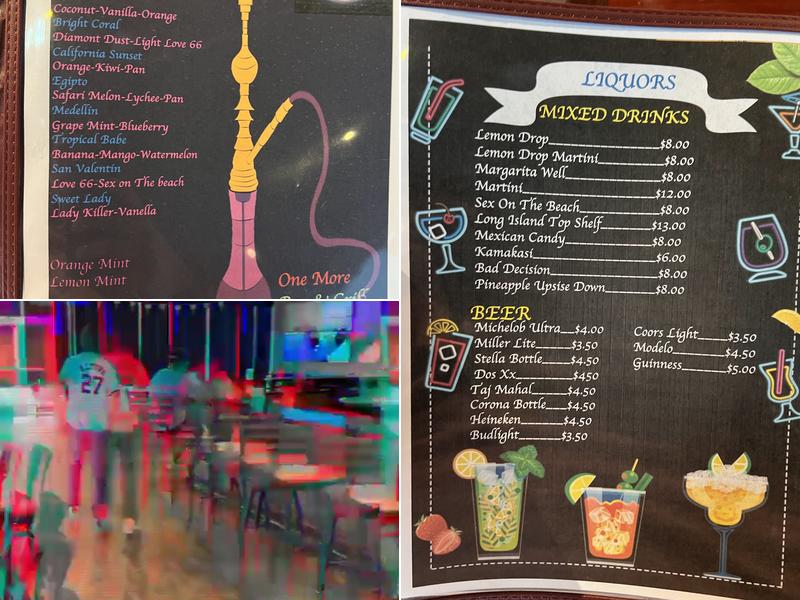 Coconut-Vanilla-Orange
Bright Coral
Diamont Dust-Light Love 66
California Sunset
Orange-Kiwi-Pan
Egipto
Safari Melon-Lychee-Pan
Medellin
Grape Mint-Blueberry
Tropical Babe
Banana-Mango-Watermelon
San Valentin
Love 66-Sex on The beach
Sweet Lady
Lady Killer-Vanella
Orange Mint
Lemon Mint
One More
27
LIQUORS
MIXED DRINKS
Lemon Drop $8.00
Lemon Drop Martini $8.00
Margarita Well $8.00
Martini $12.00
Sex On The Beach $8.00
Long Island Top Shelf $13.00
Mexican Candy $8.00
Kamakasi $6.00
Bad Decision $8.00
Pineapple Upsise Down $8.00
BEER
Michelob Ultra $4.00
Miller Lite $3.50
Stella Bottle $4.50
Dos Xx $450
Taj Mahal $4.50
Corona Bottle $4.50
Heineken $4.50
Budlight $3.50
Coors Light $3.50
Modelo $4.50
Guinness $5.00